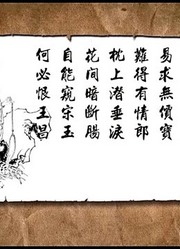 易求無價寶
難得有情郎
枕上潛垂淚
花間暗斷腸
自能窺宋玉
何必恨王昌